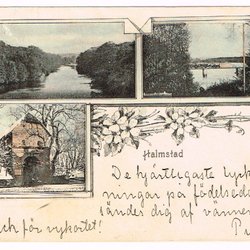 Halmstad
De hjärtligaste lyck
ningar på födelseda
sänder dig af vännen
ck för vykortet!